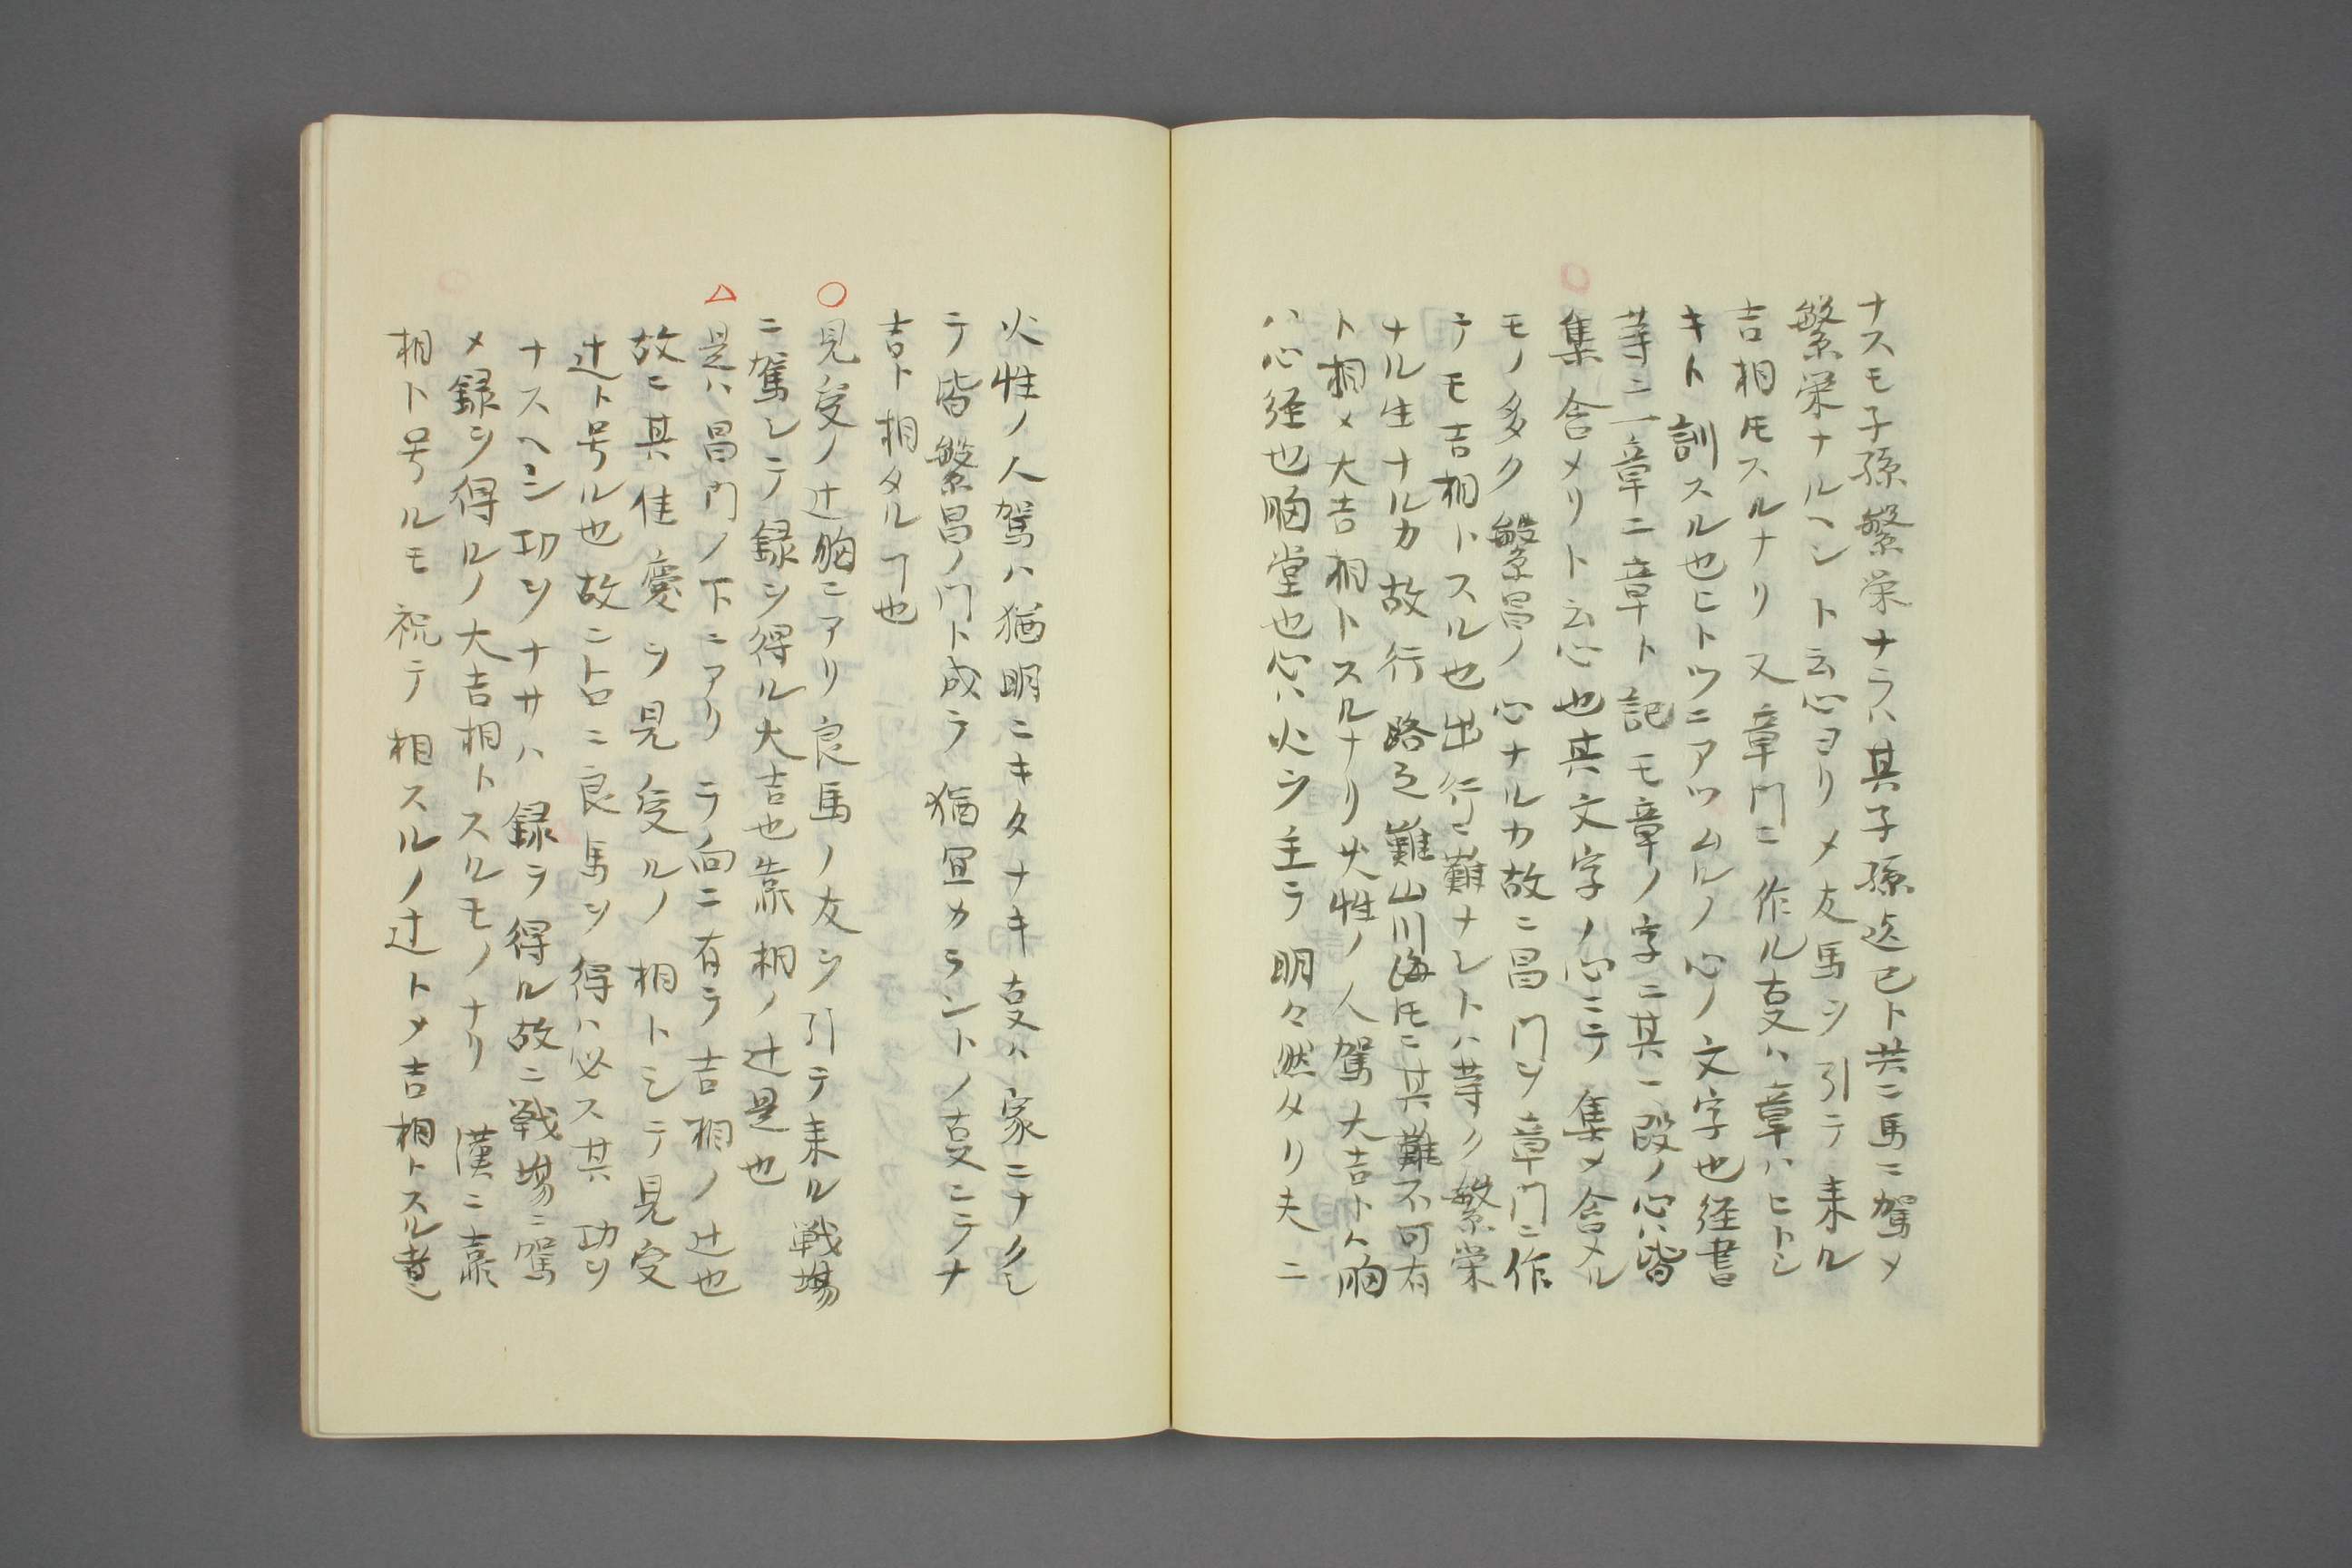 ナスモ子孫繁栄ナラハ其子孫迄已ト共ニ馬ニ駕メ
繁栄ナルヘシト云心ヨリメ友馬ヲ引テ来ル
吉相トモスルナリ又章門ニ作ル叓ハ章ハヒトシ
キト訓スル也ヒトツニアツムルノ心ノ文字也経書
等ニ一章二章ト記モ章ノ字ニ其一段ノ心ハ皆
集含メリト云心也其文字ノ心ニテ集メ含メル
モノ多ク繁昌ノ心ナルカ故ニ昌門ヲ章門ニ作
テモ吉相トスル也出行ニ難ナシトハ等ク繁栄
ナル生ナルカ故行路之難山川海トモニ其難不可有
ト相メ大吉相トスルナリ火性ノ人駕大吉トハ胸
ハ心経也胸堂也心ハ火ヲ主テ明々然タリ夫ニ
火性ノ人駕ハ猶明ニキタナキ叓ハ家ニナクシ
テ皆繁昌ノ門ト成テ猶宜カラントノ叓ニテナ
吉ト相タルヿ也
○見受ノ辻胸ニアリ良馬ノ友ヲ引テ来ル戦場
ニ駕シテ録ヲ得ル大吉也靠相ノ辻是也
△是ハ昌門ノ下ニアリテノ向ニ有テ吉相ノ辻也
故ニ其佳慶ヲ見受ルノ相トシテ見受
辻ト号ル也故ニトロニ良馬ヲ得ハ必ス其功ヲ
ナスヘシ功ヲナサハ録ヲ得ル故ニ戦場ニ駕
メ録ヲ得ルノ大吉相トスルモノナリ漢ニ靠
相ト号ルモ祝テ相スルノ辻トメ吉相トスル者也